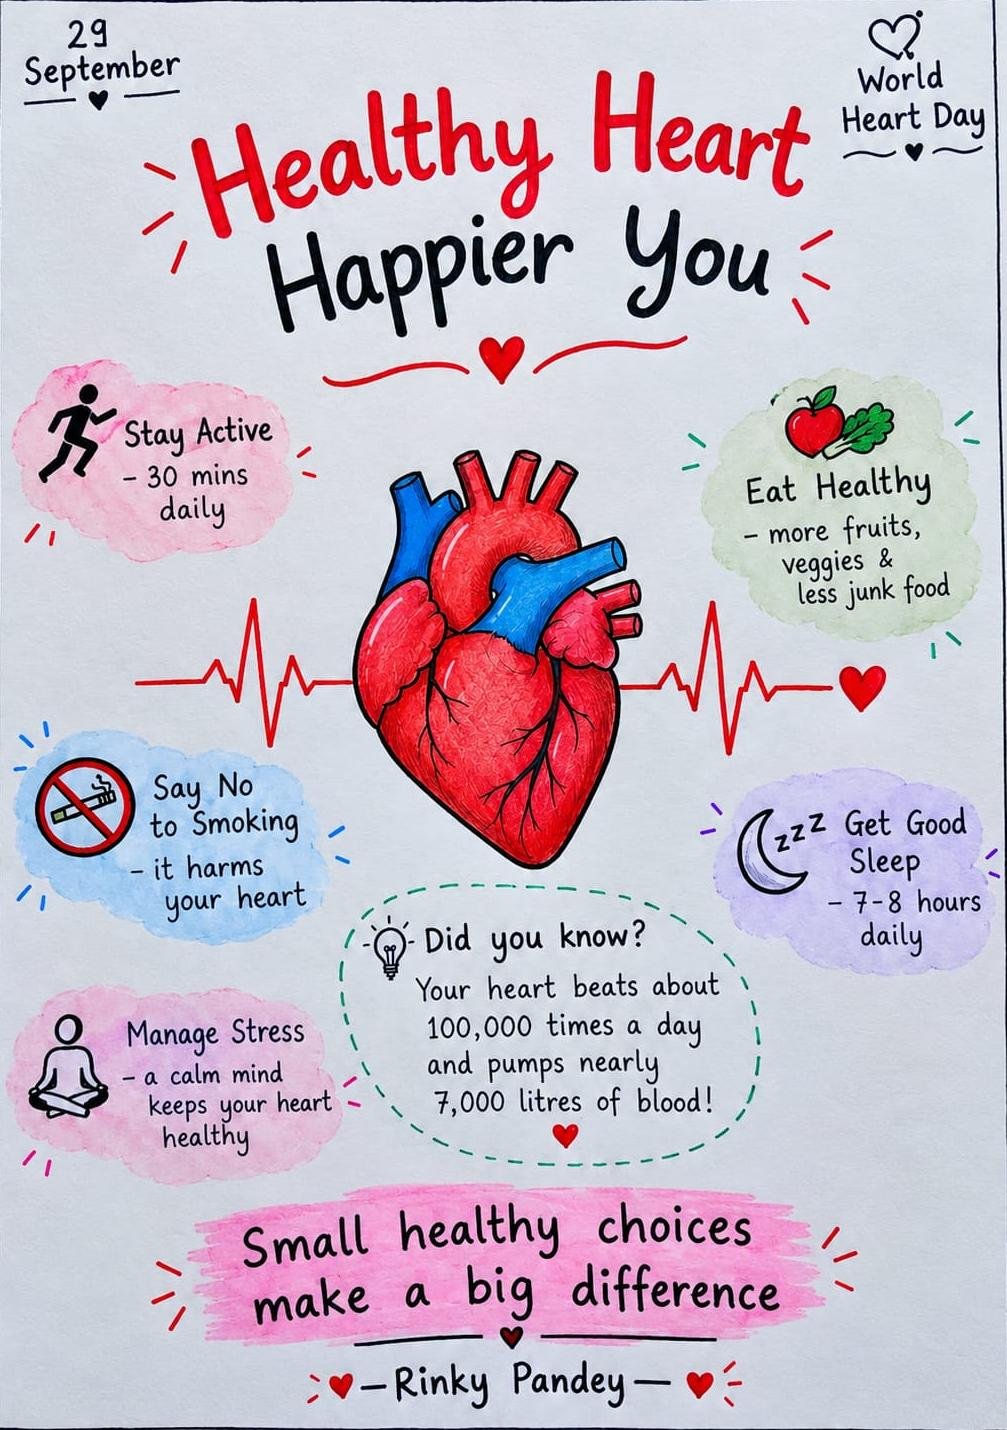 29
September
World
Heart Day
Healthy Heart
Happier You
Stay Active
- 30 mins
daily
Eat Healthy
- more fruits,
veggies &
less junk food
Say No
to Smoking
- it harms
your heart
zzz Get Good
Sleep
- 7-8 hours
daily
Did you know?
Your heart beats about
100,000 times a day
and pumps nearly
7,000 litres of blood!
Manage Stress
- a calm mind
keeps your heart
healthy
Small healthy choices
make a big difference
- Rinky Pandey -